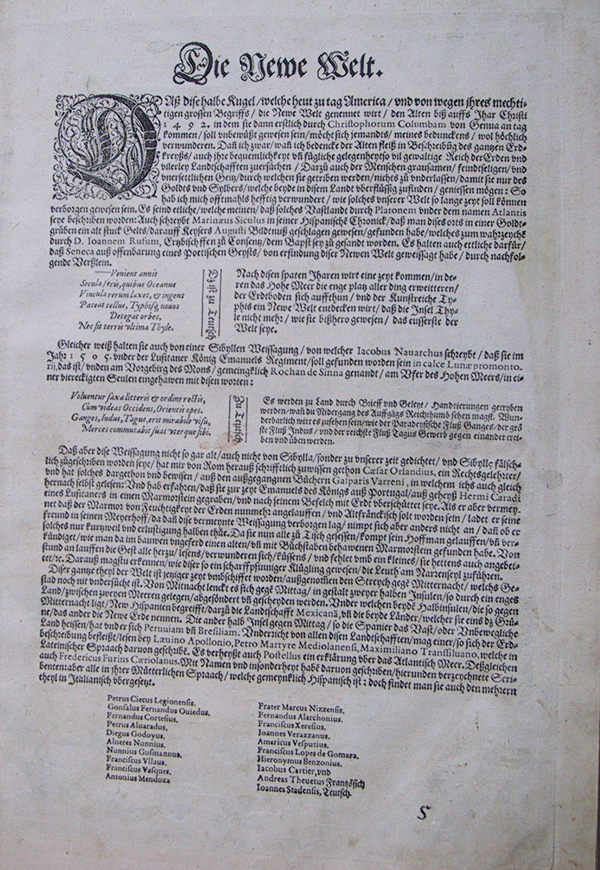 Die Newe Welt.
DAß dise halbe Kugel/welche heut zu tag America/vnd von wegen jhres mechti-
tigen grossen Begriffs/die Newe Welt genennet wirt/den Alten biß auffs Jhar Christi
1492. in dem sie dann erstlich durch Christophorum Columbam von Genua an tag
kommen/soll vnbewüßt gewesen sein/möcht sich jemandts/meines bedunckens/wol höchlich
verwunderen. Daß ich zwar/wañ ich bedencke der Alten fleiß in Beschreibũg des gantzen Erd-
kreyß/auch jhre bequemlichkeyt vñ fügliche gelegenheyt so vil gewaltige Reich der Erden vnd
vilerley Landtschafften zuersächen/Darzů auch der Menschen grausamen/feindseligen/vnd
vnersettlichen Geitz/durch welchen sie getriben werden/nichts zů vnderlassen/damit sie nur des
Goldts vnd Sylbers/welche beyde in disem Land vberflüssig zufinden/geniessen mögen: So
hab ich mich offtmahls hefftig verwundert/wie solches vnserer Welt so lange zeyt soll können
verborgen gewesen sein. Es seind etliche/welche meinen/daß solches Vastlandt durch Platonem vnder dem namen Atlantis
seye beschriben worden: Auch schreybt Marinæus Siculus in seiner Hispanische Chronick/daß man diser orts in einer Goldt-
grüben ein alt stuck Gelts/darauff Keysers Augusti Bildtnuß geschlagen gewesen/gefunden habe/welches zum wahrzeychẽ
durch D. Ioannem Rufum, Ertzbischoffen zů Consentz/dem Bapst sey zů gesandt worden. Es halten auch ettliche darfür/
daß Seneca auß offenbarung eines Poetischen Geysts/von erfindung diser Newen Welt geweissagt habe/durch nachfol-
gende Verßlein.
——Venient annis
Secula seris, quibus Oceanus
Vincula rerum laxet, & ingens
Pateat tellus, Typhisq́; nouos
Detegat orbes.
Nec sit terris vltima Thyle.
Dz ist zu Teutsch
Nach disen spaten Jharen wirt eine zeyt kommen/in de-
ren das Hohe Meer die enge platz aller ding erweitteren/
der Erdtboden sich auffthun/vnd der Kunstreiche Ty-
phis ein Newe Welt entdecken wirt/daß die Insel Thy-
le nicht mehr/wie sie bißhero gewesen/das eusserste der
Welt seye.
Gleicher weiß halten sie auch von einer Sibyllen Weissagung/von welcher Iacobus Nauarchus schreybt/daß sie im
Jahr 1505. vnder der Lusitaner König Emanuels Regiment/soll gefunden worden sein in calce Lunæ promonto-
rij, das ist/vnden am Vorgebirg des Mons/gemeinglich Rochan de Sinna genandt/am Vfer des Hohen Meers/in ei-
ner viereckigten Seulen eingehawen mit disen worten:
Voluentur saxa litteris & ordine rectis,
Cum videas Occidens, Orientis opes.
Ganges, Indus, Tagus, erit mirabile visu,
Merces commutabit suas vterque sibi.
Zu Teutsch
Es werden zu Land durch Brieff vnd Geleyt/Handtierungen getryben
werden/wañ du Nidergang des Auffgãgs Reichthumb sehen magst. Wun-
derbarlich wirt es zusehen sein/wie der Paradeysische Fluß Ganges/der grö
ste Fluß Indus/vnd der reichste Fluß Tagus Gewerb gegen einander trei-
ben vnd üben werden.
Daß aber dise Weissagung nicht so gar alt/auch nicht von Sibylla/sonder zu vnserer zeit gedichtet/vnd Sibylle fälsch-
lich zůgeschriben worden seye/hat mir von Rom herauß schrifftlich zuwissen gethon Cæsar Orlandius, ein Rechtsgelehrter/
vnd hat solches dargethon vnd bewisen/auß den außgegangnen Büchern Gasparis Varreni, in welchem ich auch gleich
hernach selbst gelesen: Vnd hab erfahren/daß sie zur zeyt Emanuels des Königs auß Portugal/auß geheyß Hermi Caradi
eines Lusitaners in einen Marmorstein gegraben/vnd nach seinem Befelch mit Erd vberschüttet seye. Als er aber vermey-
net daß der Marmor von Feuchtigkeyt der Erden nunmehr angelauffen/vnd Altfränckisch solt worden sein/ladet er seine
freund in seinen Meyerhoff/da dañ dise vermeynte Weissagung verborgen lag/nimpt sich aber anders nicht an/daß ob er
solches nur kurtzweil vnd erlustigung halben thüe. Da sie nun alle zů Tisch gesessen/kompt sein Hoffman gelauffen/vñ ver-
kündiget/wie man da im bauwen vngeferd einen alten/vñ mit Bůchstaben behawenen Marmorstein gefunden habe. Von
stund an lauffen die Gest alle herzu/lesens/verwunderen sich/küssens/vnd fehlet vmb ein kleines/sie hettens auch angebet-
tet/rc. Darauß magstu erkennen/wie diser so ein scharpffsinniger Klügling gewesen/die Leuth am Narrenseyl zuführen.
Diser gantze theyl der Welt ist yetziger zeyt vmbschiffet worden/außgenommen den Streych gegẽ Mitternacht/welchs Ge-
stad noch nit vndersůcht ist. Von Mitnacht lencket es sich gegẽ Mittag/in gestalt zweyer halben Insulen/so durch ein enges
Land/zwischen zweyen Meeren gelegen/abgesöndert vñ gescheyden werden. Vnder welchen beydẽ Halbinsulen/die so gegen
Mitternacht ligt/New Hispanien begreifft/darzů die Landtschafft Mexicanã, vñ die beyde Länder/welche sie eins dz Grün-
ne/das ander die Newe Erde nennen. Die ander halb Insel gegen Mittag/so die Spanier das Vast/oder Vnbewegliche
Land heissen/hat vnder sich Peruuiam vñ Bresiliam. Vnderricht von allen disen Landtschafften/mag einer/so sich der Erd-
beschreibung befleißt/lesen bey Læuino Apollonio, Petro Martyre Mediolanensi, Maximiliano Transsiluano, welche in
Lateinischer Spraach daruon geschribẽ. Es verheyßt auch Postellus ein erklärung vber das Atlantisch Meer. Deßgleichen
auch Fredericus Furius Cæriolanus. Mit Namen vnd insonderheyt habẽ daruon geschriben/hierunden verzeychnete Scri-
benten/fast alle in jhrer Můtterlichen Spraach/welche gemeynklich Hispanisch ist: doch findet man sie auch den mehrern
theyl in Italianisch vbergesetzt.
Petrus Ciecus Legionensis.
Gonsalus Fernandus Ouiedus.
Fernandus Cortesius.
Petrus Aluaradus.
Diegus Godoyus.
Aluerus Nunnius.
Nunnius Gusmannus.
Franciscus Vllaus.
Franciscus Vasques.
Antonius Mendoza
Frater Marcus Nizzensis.
Fernandus Alarchonius.
Franciscus Xeresius.
Ioannes Verazzanus.
Americus Vesputius.
Franciscus Lopes de Gomara.
Hieronymus Benzonius.
Iacobus Cartier, vnd
Andreas Theuetus Frantzösisch
Ioannis Stadensis, Teutsch.
5